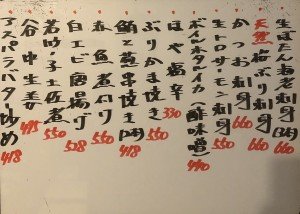 生ぼたん海老刺身 660
天然桜ぶり刺身 660
かつお刺身 660
生トロサーモン刺身 550
ボイルホタルイカ(酢味噌) 440
ほや塩辛 330
ぶりかま焼き 550
鮪と葱串焼き(2本) 418
煮付け 550
白エビ唐揚げ 528
若竹子土佐煮 550
谷中生姜 495
アスパラバター炒め 418